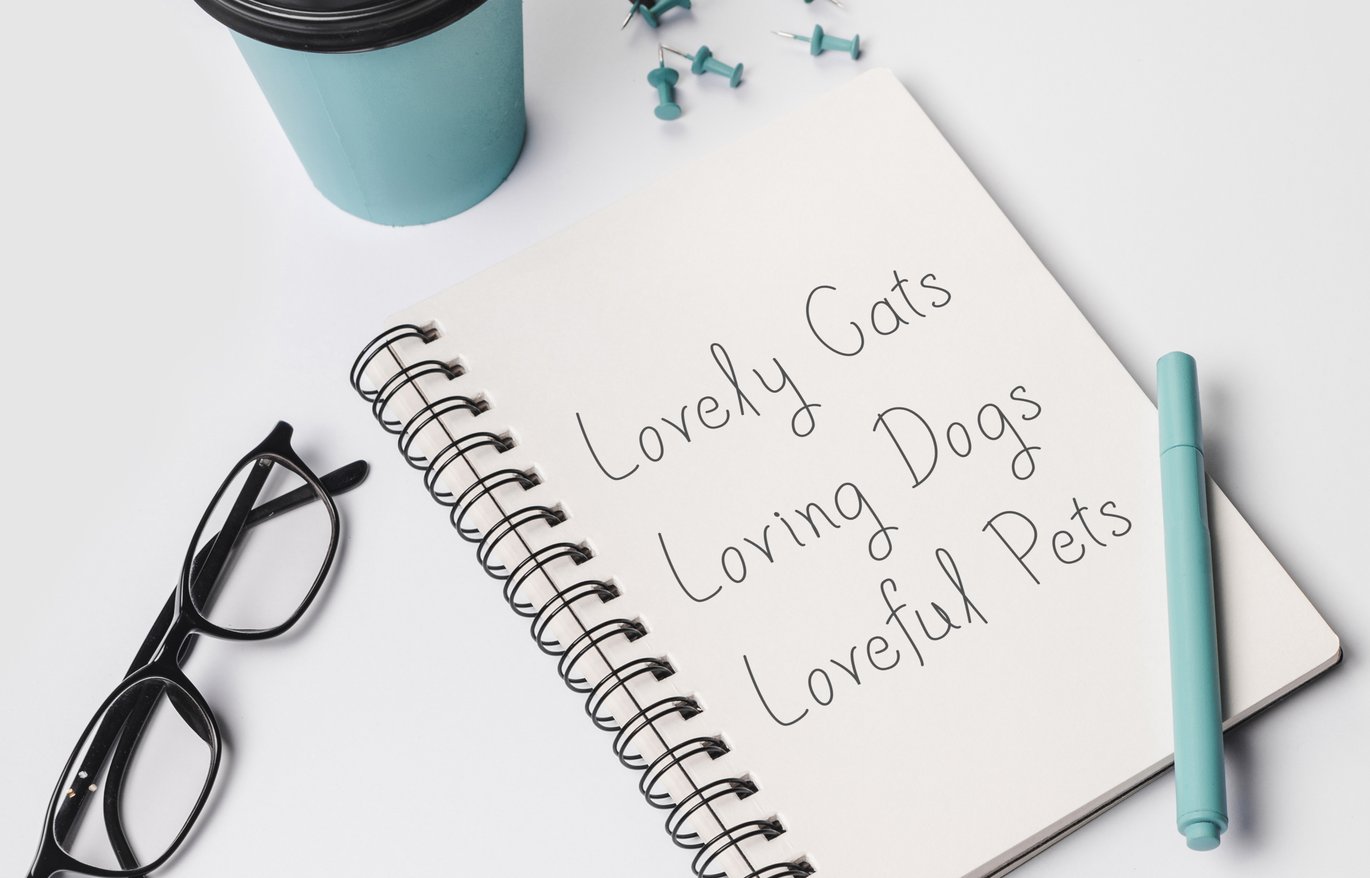 Lovely Cats
Loving Dogs
Loveful Pets